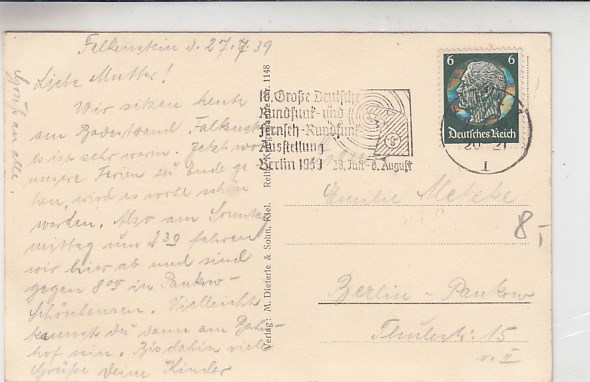 Falkenstein d. 27.7.39
Liebe Mutter!
Wir sitzen heute
am Badestrand Falkenst.
es ist sehr warm. Jetzt wo
unsere Ferien zu Ende ge
hen, wird es wohl schön
werden. Also am Sonntag
mittag um 1 30 fahren
wir hier ab und sind
gegen 8 00 in Pankow-
Schönhausen. Vielleicht
kannst du dann am Bahn-
hof sein. Bis dahin viele
Grüße deine Kinder
Grüß an alle.
Verlag: M. Dieterle & Sohn, Kiel.
Nr. 1148
16. Große Deutsche
Rundfunk- und
Fernseh-Rundfunk
Ausstellung
Berlin 1939 28. Juli - 6. August
6 6
Deutsches Reich
1
Emilie Metzke
8,-
Berlin - Pankow
15
v. II